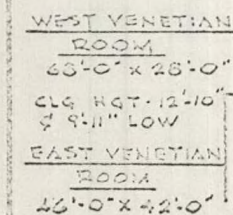 WEST VENETIAN
ROOM
68'-0" x 28'-0"
CLG HGT-12'-10"
& 9'-11" LOW
EAST VENETIAN
ROOM
46'-0" x 42'-0"